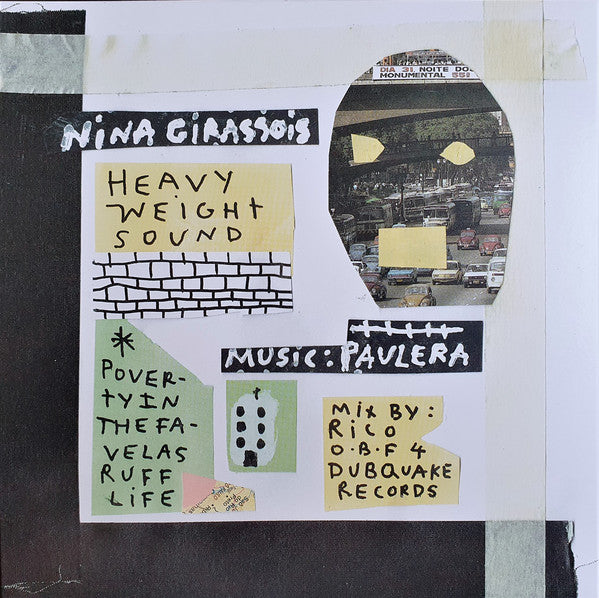 DIA 31. NOITE DO
MONUMENTAL 55!
NiNA GiRASSOiS
HEAVY
WEiGHt
SOUND
MUSiC: PAULERA
*
POVER-
TYIN
THE FA-
VELAS
RUFF
LiFE
MiX BY:
RiCO
O.B.F 4
DUBQUAKE
RECORDS